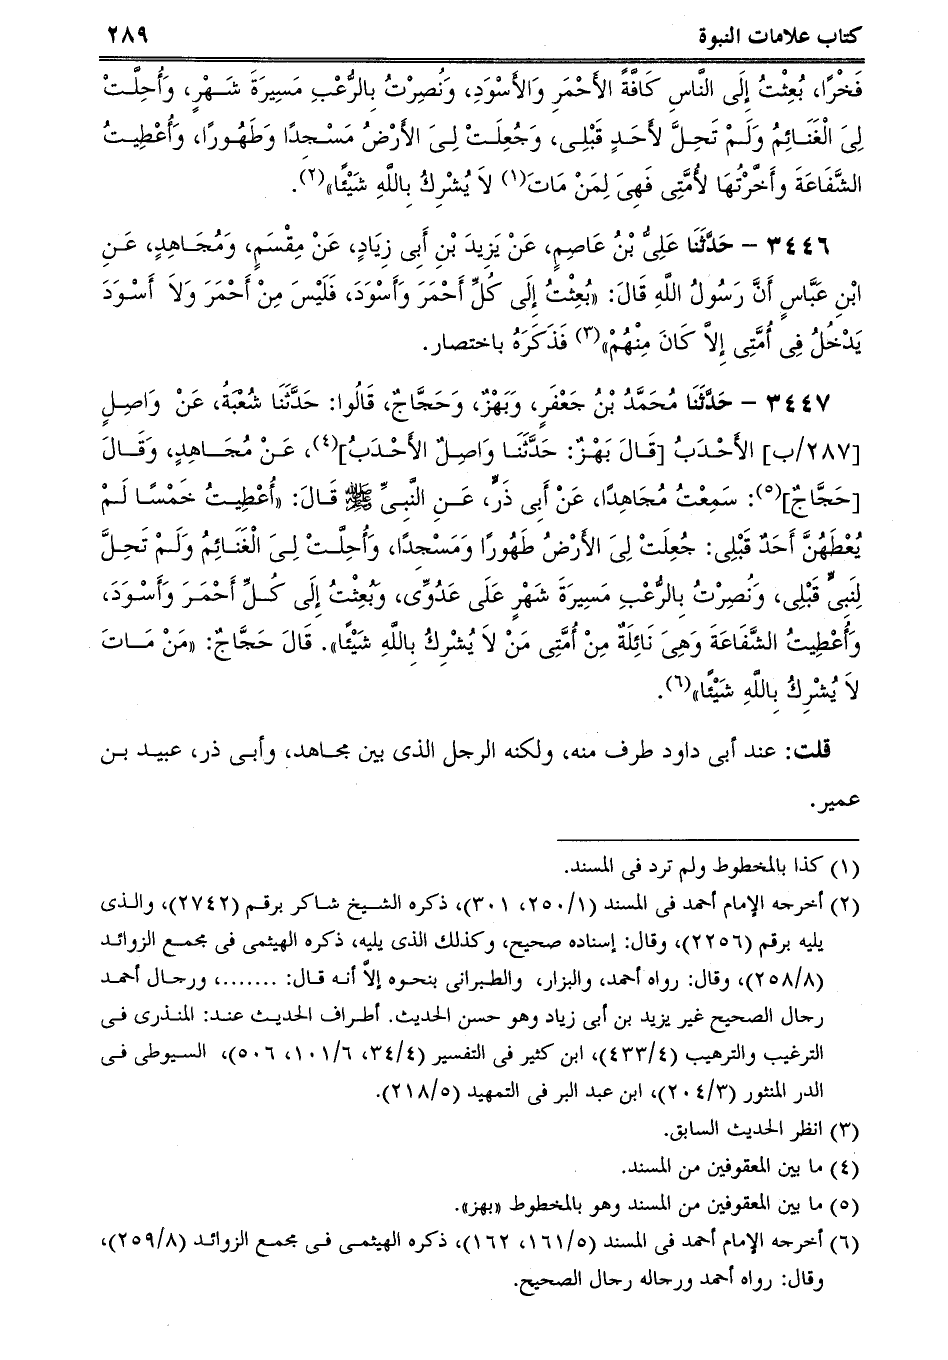 كتاب علامات النبوة ٢٨٩
فَخْرًا، بُعِثْتُ إِلَى النَّاسِ كَافَّةً الأَحْمَرِ وَالأَسْوَدِ، وَنُصِرْتُ بِالرُّعْبِ مَسِيرَةَ شَهْرٍ، وَأُحِلَّتْ
لِىَ الْغَنَائِمُ وَلَمْ تَحِلَّ لأَحَدٍ قَبْلِى، وَجُعِلَتْ لِىَ الأَرْضُ مَسْجِدًا وَطَهُورًا، وَأُعْطِيتُ
الشَّفَاعَةَ وأَخَّرْتُهَا لأُمَّتِى فَهِىَ لِمَنْ مَاتَ(١) لاَ يُشْرِكُ بِاللَّهِ شَيْئًا»(٢).
٣٤٤٦ – حَدَّثَنَا عَلِىُّ بْنُ عَاصِمٍ، عَنْ يَزِيدَ بْنِ أَبِى زِيَادٍ، عَنْ مِقْسَمٍ، وَمُجَاهِدٍ، عَنِ
ابْنِ عَبَّاسٍ أَنَّ رَسُولُ اللَّهِ قَالَ: «بُعِثْتُ إِلَى كُلِّ أَحْمَرَ وَأَسْوَدَ، فَلَيْسَ مِنْ أَحْمَرَ وَلاَ أَسْوَدَ
يَدْخُلُ فِى أُمَّتِى إِلاَّ كَانَ مِنْهُمْ»(٣) فَذَكَرَهُ باختصار.
٣٤٤٧ – حَدَّثَنَا مُحَمَّدُ بْنُ جَعْفَرٍ، وَبَهْزٌ، وَحَجَّاجٌ، قَالُوا: حَدَّثَنَا شُعْبَةُ، عَنْ وَاصِلٍ
[٢٨٧/ب] الأَحْدَبُ [قَالَ بَهْزٌ: حَدَّثَنَا وَاصِلٌ الأَحْدَبُ](٤)، عَنْ مُجَاهِدٍ، وَقَالَ
[حَجَّاجٌ](٥): سَمِعْتُ مُجَاهِدًا، عَنْ أَبِى ذَرٍّ، عَنِ النَّبِىِّ ﷺ قَالَ: «أُعْطِيتُ خَمْسًا لَمْ
يُعْطَهُنَّ أَحَدٌ قَبْلِى: جُعِلَتْ لِىَ الأَرْضُ طَهُورًا وَمَسْجِدًا، وَأُحِلَّتْ لِىَ الْغَنَائِمُ وَلَمْ تَحِلَّ
لِنَبِىٍّ قَبْلِى، وَنُصِرْتُ بِالرُّعْبِ مَسِيرَةَ شَهْرٍ عَلَى عَدُوِّى، وَبُعِثْتُ إِلَى كُلِّ أَحْمَرَ وَأَسْوَدَ،
وَأُعْطِيتُ الشَّفَاعَةَ وَهِىَ نَائِلَةٌ مِنْ أُمَّتِى مَنْ لاَ يُشْرِكُ بِاللَّهِ شَيْئًا». قَالَ حَجَّاجٌ: «مَنْ مَاتَ
لاَ يُشْرِكُ بِاللَّهِ شَيْئًا»(٦).
قلت: عند أبى داود طرف منه، ولكنه الرجل الذى بين مجاهد، وأبى ذر، عبيد بن
عمير.
(١) كذا بالمخطوط ولم ترد فى المسند.
(٢) أخرجه الإمام أحمد فى المسند (٢٥٠/١، ٣٠١)، ذكره الشيخ شاكر برقم (٢٧٤٢)، والذى
يليه برقم (٢٢٥٦)، وقال: إسناده صحيح، وكذلك الذى يليه، ذكره الهيثمى فى مجمع الزوائد
(٢٥٨/٨)، وقال: رواه أحمد، والبزار، والطبرانى بنحوه إلاَّ أنه قال: .......، ورجال أحمد
رجال الصحيح غير يزيد بن أبى زياد وهو حسن الحديث. أطراف الحديث عند: المنذرى فى
الترغيب والترهيب (٤٣٣/٤)، ابن كثير فى التفسير (٣٤/٤، ١٠١/٦، ٥٠٦)، السيوطى فى
الدر المنثور (٢٠٤/٣)، ابن عبد البر فى التمهيد (٢١٨/٥).
(٣) انظر الحديث السابق.
(٤) ما بين المعقوفين من المسند.
(٥) ما بين المعقوفين من المسند وهو بالمخطوط «بهز».
(٦) أخرجه الإمام أحمد فى المسند (١٦١/٥، ١٦٢)، ذكره الهيثمى فى مجمع الزوائد (٢٥٩/٨)،
وقال: رواه أحمد ورجاله رجال الصحيح.